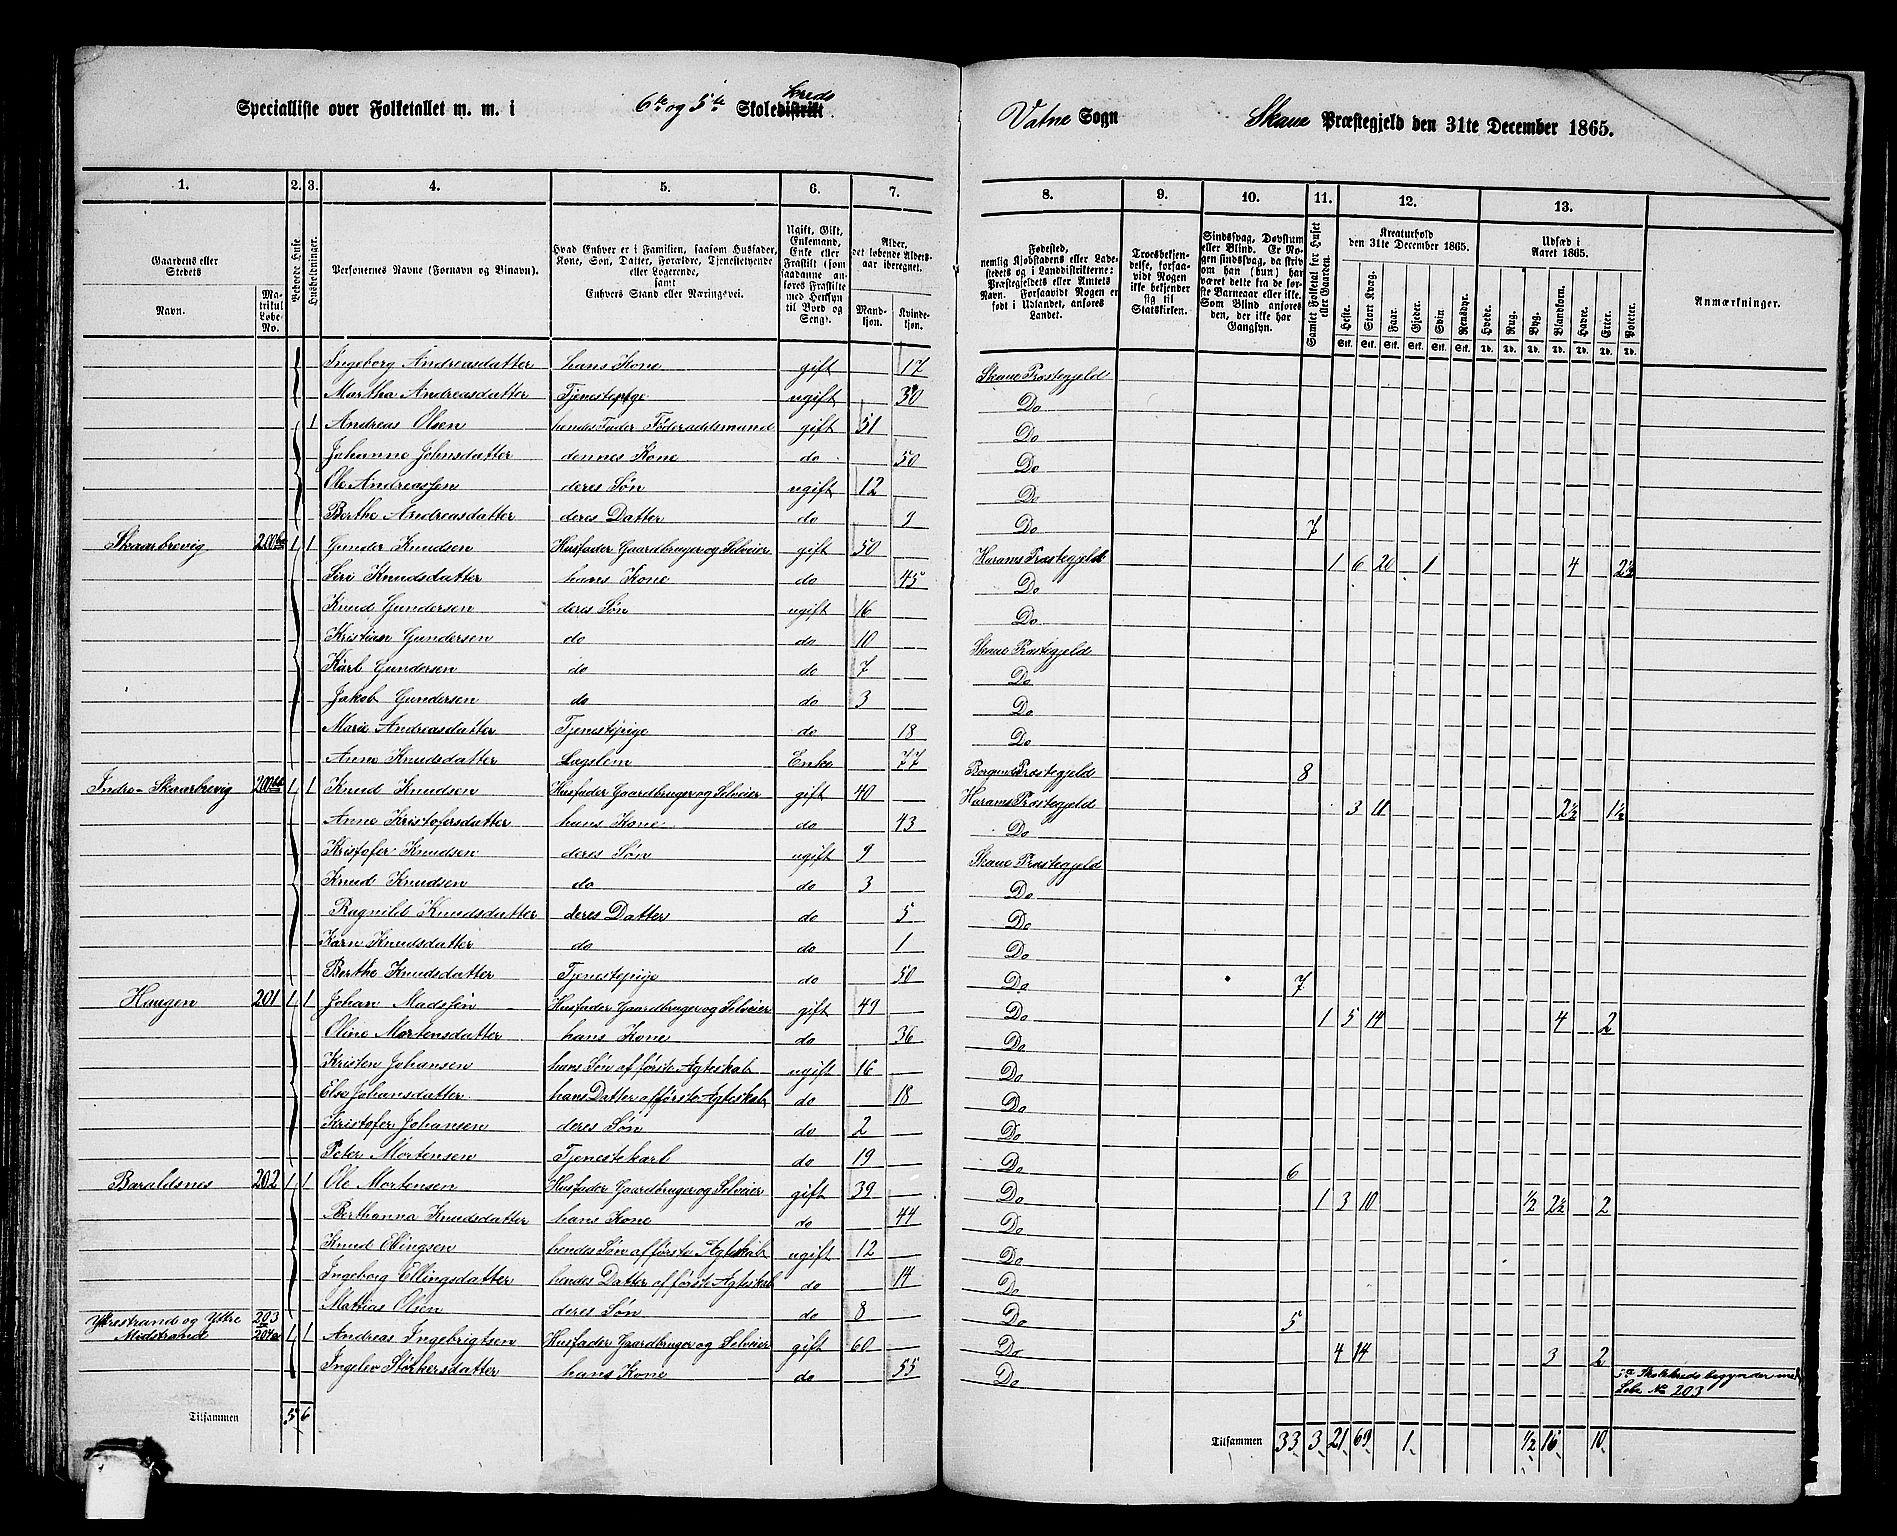 Specialliste over Folketallet m. m. i 6te og 5te Skoledistrikt Kreds
Vatne Sogn Skaue Præstegjeld den 31te December 1865.
1. 2. 3. 4. 5. 6. 7. 8. 9. 10. 11. 12. 13.
Gaardens eller Stedets
Navn.
Matrikul Løbe-No.
Beboede Huse.
Husholdninger.
Personernes Navne (Fornavn og Binavn).
Hvad Enhver er i Familien, saasom Husfader, Kone, Søn, Datter, Forældre, Tjenestetyende eller Logerende, samt Enhvers Stand eller Næringsvei.
Ugift, Gift, Enkemand, Enke eller Fraskilt (som saadanne anføres Fraskilte med Hensyn til Bord og Seng).
Alder, det løbende Aldersaar iberegnet.
Mandkjøn. Kvindekjøn.
Fødested, nemlig Kjøbstadens eller Ladestedets og i Landdistrikterne: Præstegjeldets eller Amtets Navn. Forsaavidt Nogen er født i Udlandet, anføres Landet.
Troesbekjendelse, forsaavidt Nogen ikke bekjender sig til Statskirken.
Sindssvag, Døvstum eller Blind. Er Nogen sindssvag, da skriv om han (hun) har været dette fra de første Barneaar eller ikke. Som Blind anføres den, der ikke har Gangsyn.
Samlet Folketal for Huset eller Gaarden.
Kreaturhold den 31te December 1865.
Heste. Stort Kvæg. Faar. Gjeder. Svin. Rensdyr.
Udsæd i Aaret 1865.
Hvede. Rug. Byg. Blandkorn. Havre. Erter. Poteter.
Anmærkninger.
Ingeborg Andreasdatter hans Kone gift 17 Skaue Præstegjeld
Martha Andreasdatter Tjenestepige ugift 30 Do
1 Andreas Olsen hendes Fader Føderaadsmand gift 51 Do
Johanne Johnsdatter dennes Kone do 50 Do
Ole Andreassen deres Søn ugift 12 Do
Berthe Andreasdatter deres Datter do 9 Do 7
Skaarbrevig 1 1 Gunder Knudsen Husfader Gaardbruger og Selveier gift 50 Harams Præstegjeld 1 6 20 1 4 2½
Siri Knudsdatter hans Kone do 45 Do
Knud Gundersen deres Søn ugift 16 Do
Kristian Gundersen do do 10 Skaue Præstegjeld
Karl Gundersen do do 7 Do
Jakob Gundersen do do 3 Do
Marie Andreasdatter Tjenestepige do 18 Do
Anne Knudsdatter Lægslem Enke 77 Borgunds Præstegjeld 8
Indre-Skaarbrevig 1 1 Knud Knudsen Husfader Gaardbruger og Selveier gift 40 Harams Præstegjeld 3 11 2½ 1½
Anne Kristofersdatter hans Kone do 43 Do
Kristofer Knudsen deres Søn ugift 9 Skaue Præstegjeld
Knud Knudsen do do 3 Do
Ragnild Knudsdatter deres Datter do 5 Do
Karn Knudsdatter do do 1 Do
Berthe Knudsdatter Tjenestepige do 50 Do 7
Haugen 201 1 1 Johan Madssen Husfader Gaardbruger og Selveier gift 49 Do 1 5 14 4 2
Oline Mortensdatter hans Kone do 36 Do
Kristen Johansen hans Søn af første Ægteskab ugift 16 Do
Else Johansdatter hans Datter af første Ægteskab do 18 Do
Kristofer Johansen deres Søn do 2 Do
Peter Mortensen Tjenestekarl do 19 Do 6
Baraldsnes 202 1 1 Ole Mortensen Husfader Gaardbruger og Selveier gift 39 Do 1 3 10 ½ 2½ 2
Berthanna Knudsdatter hans Kone do 44 Do
Knud Ellingsen hendes Søn af første Ægteskab ugift 12 Do
Ingeborg Ellingsdatter hendes Datter af første Ægteskab do 14 Do
Mathias Olsen deres Søn do 8 Do 5
Ytrestrand og Ytre Midstrand 203 204a 1 1 Andreas Ingebrigtsen Husfader Gaardbruger og Selveier gift 60 Do 4 14 3 2
Ingelev Størkersdatter hans Kone do 55 Do 5te Skolekreds begynder med Løbe No 203
Tilsammen 5 6
Tilsammen 33 3 21 69 1 ½ 16 10